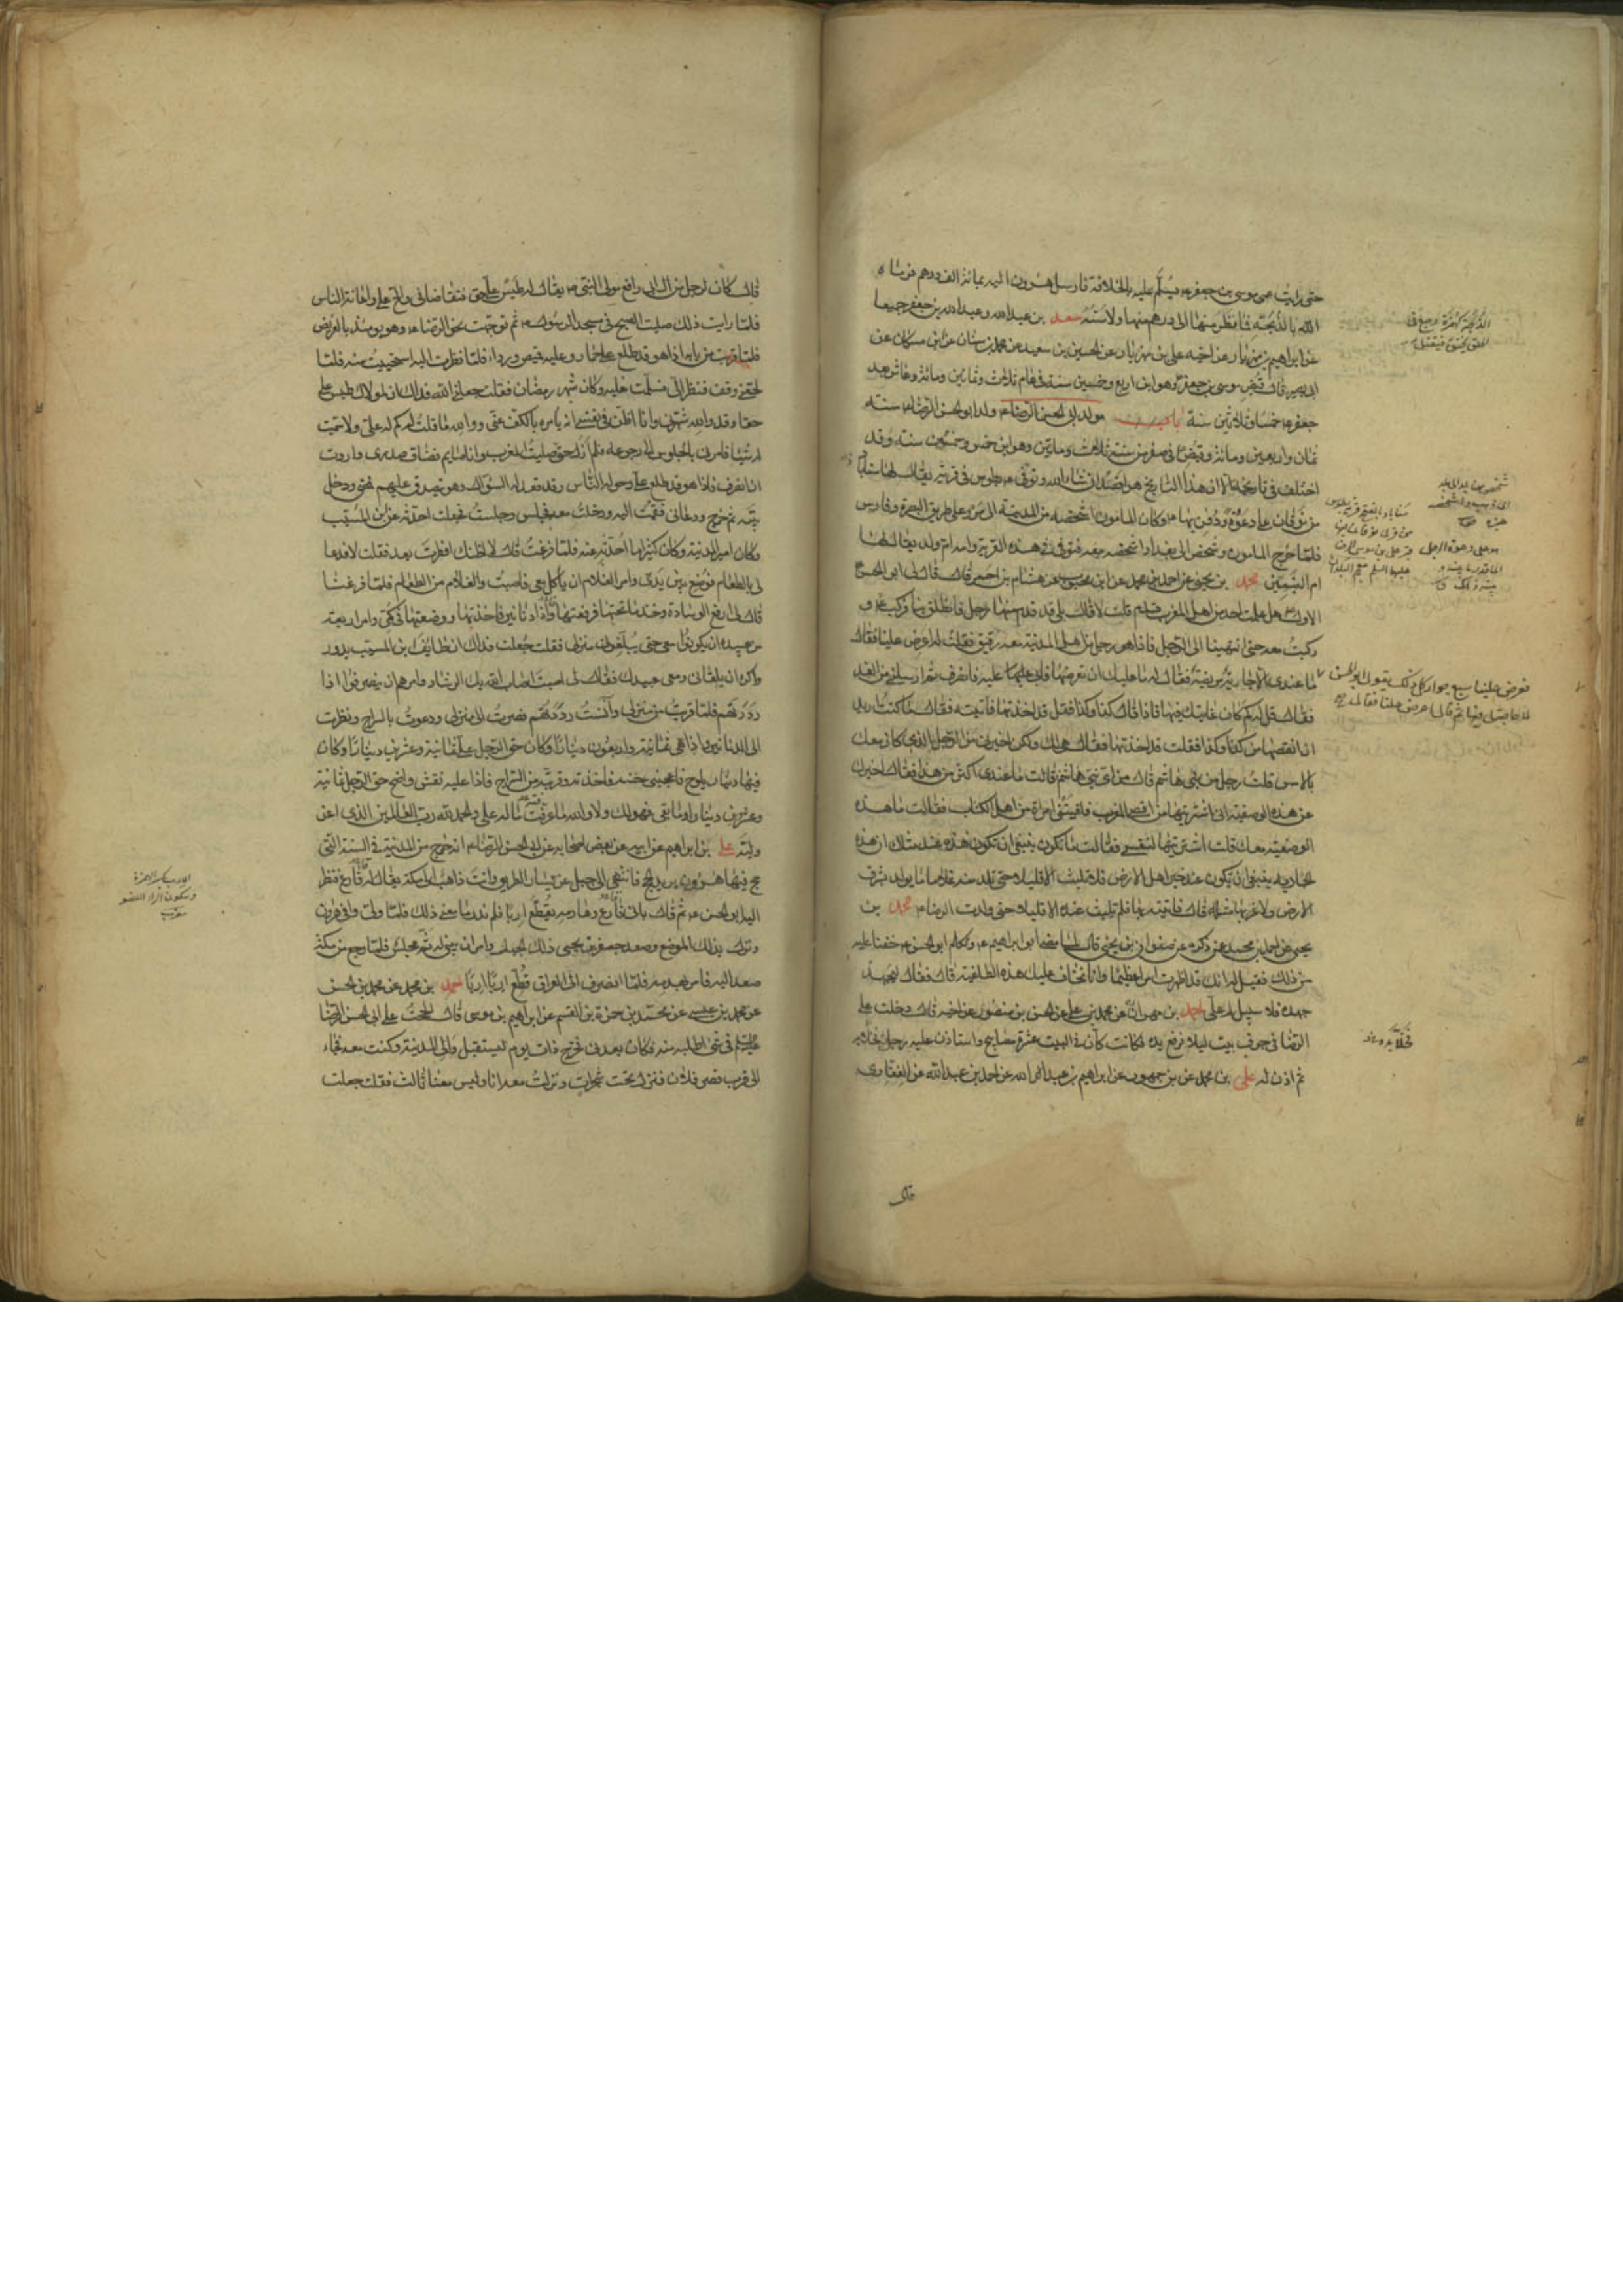 حتى رايت عمى موسى بن جعفر ع يسلم عليه بالخلافة فارسل هرون اليه بمائة الف درهم فرماه
الله بالذبحة فما نظر منها الى درهم منها ولا مسه سعد بن عبد الله وعبد الله بن جعفر جميعا
عن ابراهيم بن مهزيار عن اخيه على بن مهزيار عن الحسين بن سعيد عن محمد بن سنان عن ابن مسكان عن
ابى بصير قال قبض موسى بن جعفر ع وهو ابن اربع وخمسين سنة فى عام ثلاث وثمانين ومائة وعاش بعد
جعفر ع خمسا وثلاثين سنة باب مولد ابى الحسن الرضا ع ولد ابو الحسن الرضا ع سنة
ثمان واربعين ومائة وقبض ع فى صفر من سنة ثلاث ومائتين وهو ابن خمس وخمسين سنة وقد
اختلف فى تاريخه الا ان هذا التاريخ هو اقصد ان شاء الله وتوفى ع بطوس فى قرية يقال لها سناباد
من نوقان على دعوة ودفن بها ع وكان المامون اشخصه من المدينة الى مرو على طريق البصرة وفارس
فلما خرج المامون وشخص الى بغداد اشخصه معه فتوفى فى هذه القرية وامه ام ولد يقال لها
ام البنين محمد بن يحيى عن احمد بن محمد عن ابن محبوب عن هشام بن احمر قال قال لى ابو الحسن
الاول ع هل علمت احد من اهل المغرب قدم قلت لا قال بلى قد قدم رجل فانطلق بنا فركب ع و
ركبت معه حتى انتهينا الى الرجل فاذا هو رجل من اهل المدينة معه رقيق فقلت له اعرض علينا فقال
ما عندى الا جارية مريضة فقال له ما عليك ان تعرضها فابى عليه فانصرف ثم ارسلنى من الغد
فقال قل له كم كان غايتك فيها فاذا قال كذا وكذا فقل قد اخذتها فاتيته فقال ما كنت اريد
ان انقصها من كذا وكذا فقلت قد اخذتها فقال هى لك ولكن اخبرنى من الرجل الذى كان معك
بالامس قلت رجل من بنى هاشم قال من اى بنى هاشم فقلت ما عندى اكثر من هذا فقال اخبرك
عن هذه الوصيفة انى اشتريتها من اقصى المغرب فلقيتنى امراة من اهل الكتاب فقالت ما هذه
الوصيفة معك قلت اشتريتها لنفسى فقالت ما يكون ينبغى ان تكون هذه عند مثلك ان هذه
الجارية ينبغى ان تكون عند خير اهل الارض فلا تلبث الا قليلا حتى تلد منه غلاما ما يولد بشرق
الارض ولا غربها مثله قال فاتيته بها فلم تلبث عنده الا قليلا حتى ولدت الرضا ع محمد بن
يحيى عن احمد بن محمد عمن ذكره عن صفوان بن يحيى قال لما مضى ابو ابراهيم ع وتكلم ابو الحسن ع خفنا عليه
من ذلك فقيل له انك قد اظهرت امرا عظيما وانا نخاف عليك هذه الطاغية قال فقال ليجهد
جهده فلا سبيل له على احمد بن مهران عن محمد بن على عن الحسن بن منصور عن اخيه قال دخلت على
الرضا فى جوف بيت ليلا فرفع يده فكانت كان فى البيت عشرة مصابيح واستاذن عليه رجل فخلا يده
ثم اذن له على بن محمد عن بن جمهور عن ابراهيم بن عبد الله عن احمد بن عبد الله عن الغفارى
قال
قال كان لرجل من آل ابى رافع مولى النبى ص يقال له طيس على حق فتقاضانى والح على واعانه الناس
فلما رايت ذلك صليت الصبح فى مسجد الرسول ص ثم توجهت نحو الرضا ع وهو يومئذ بالعريض
فلما قربت من بابه اذا هو قد طلع على حمار وعليه قميص ورداء فلما نظرت اليه استحييت منه فلما
لحقنى وقف فنظر الى فسلمت عليه وكان شهر رمضان فقلت جعلنى الله فداك ان لمولاك طيس على
حقا وقد والله شهرنى وانا اظن فى نفسى انه يامره بالكف عنى ووالله ما قلت له كم له على ولا سميت
له شيئا فامرنى بالجلوس الى رجوعه فلم ازل حتى صليت المغرب وانا صايم فضاق صدرى واردت
ان انصرف فاذا هو قد طلع على وحوله الناس وقد قعد له السؤال وهو يتصدق عليهم فمضى ودخل
بيته ثم خرج ودعانى فقمت اليه ودخلت معه فجلس وجلست فجعلت احدثه عن ابن المسيب
وكان امير المدينة وكان كثيرا ما احدثه عنه فلما فرغت قال لا اظنك افطرت بعد فقلت لا فدعا
لى بالطعام فوضع بين يدى وامر الغلام ان ياكل معى فاصبت والغلام من الطعام فلما فرغنا
قال لى ارفع الوسادة وخذ ما تحتها فرفعتها واذا دنانير فاخذتها ووضعتها فى كمى وامر اربعة
من عبيده ان يكونوا معى حتى يبلغونى منزلى فقلت جعلت فداك ان طايف بن المسيب يدور
واكره ان يلقانى ومعى عبيدك فقال لى اصبت اصاب الله بك الرشاد وامرهم ان ينصرفوا اذا
رددتهم فلما قربت من منزلى وآنست رددتهم فصرت الى منزلى ودعوت بالسراج ونظرت
الى الدنانير واذا هى ثمانية واربعون دينارا وكان حق الرجل على ثمانية وعشرين دينارا وكان
فيها دينار يلوح فاعجبنى حسنه فاخذته وقربته من السراج فاذا عليه نقش واضح حق الرجل ثمانية
وعشرون دينارا وما بقى فهو لك ولا والله ما عرفت ما له على والحمد لله رب العالمين الذى اعز
وليه على بن ابراهيم عن ابيه عن بعض اصحابه عن ابى الحسن الرضا ع انه خرج من المدينة فى السنة التى
حج فيها هرون يريد الحج فانتهى الى جبل عن يسار الطريق وانت ذاهب الى مكة يقال له فارع فنظر
اليه ابو الحسن ع ثم قال بانى فارع وهادمه يقطع اربا اربا فلم ندر ما معنى ذلك فلما ولى وافى هرون
ونزل بذلك الموضع وصعد جعفر بن يحيى ذلك الجبل وامر ان يبنى له ثم مجلس فلما رجع من مكة
صعد اليه فامر بهدمه فلما انصرف الى العراق قطع اربا اربا احمد بن محمد عن محمد بن الحسن
عن محمد بن عيسى عن محمد بن حمزة بن القسم عن ابراهيم بن موسى قال الححت على ابى الحسن الرضا
عليه السلم فى شئ اطلبه منه فكان يعدنى فخرج ذات يوم ليستقبل والى المدينة وكنت معه فجاء
الى قرب قصر فلان فنزل تحت شجرات ونزلت معه انا وليس معنا ثالث فقلت جعلت